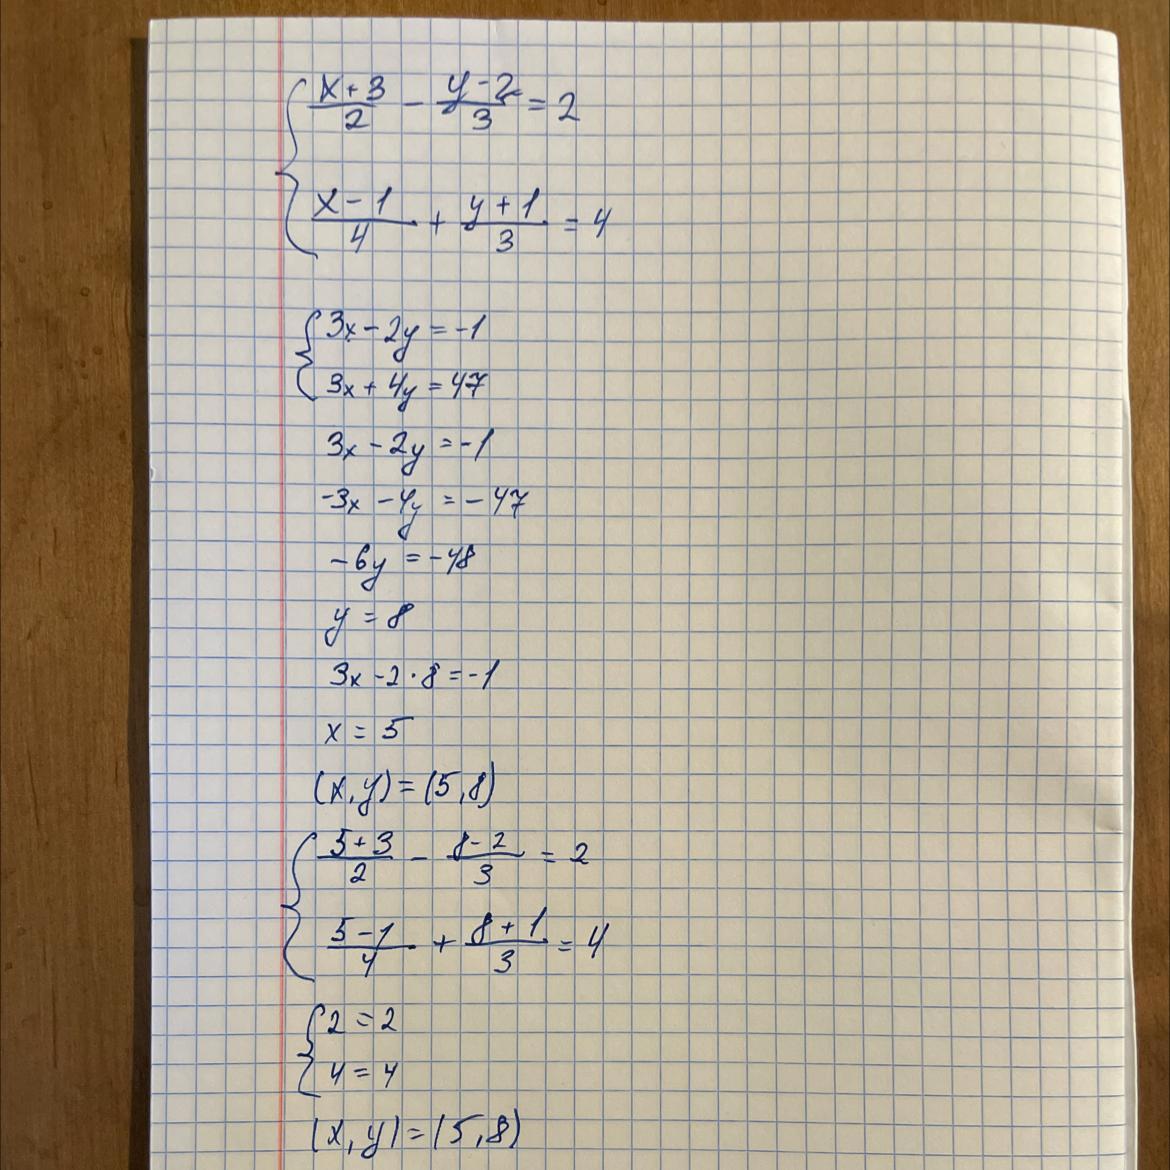 { (x+3)/2 - (y-2)/3 = 2
(x-1)/4 + (y+1)/3 = 4
{ 3x - 2y = -1
3x + 4y = 47
3x - 2y = -1
-3x - 4y = -47
-6y = -48
y = 8
3x - 2 · 8 = -1
x = 5
(x, y) = (5, 8)
{ (5+3)/2 - (8-2)/3 = 2
(5-1)/4 + (8+1)/3 = 4
{ 2 = 2
4 = 4
(x, y) = (5, 8)